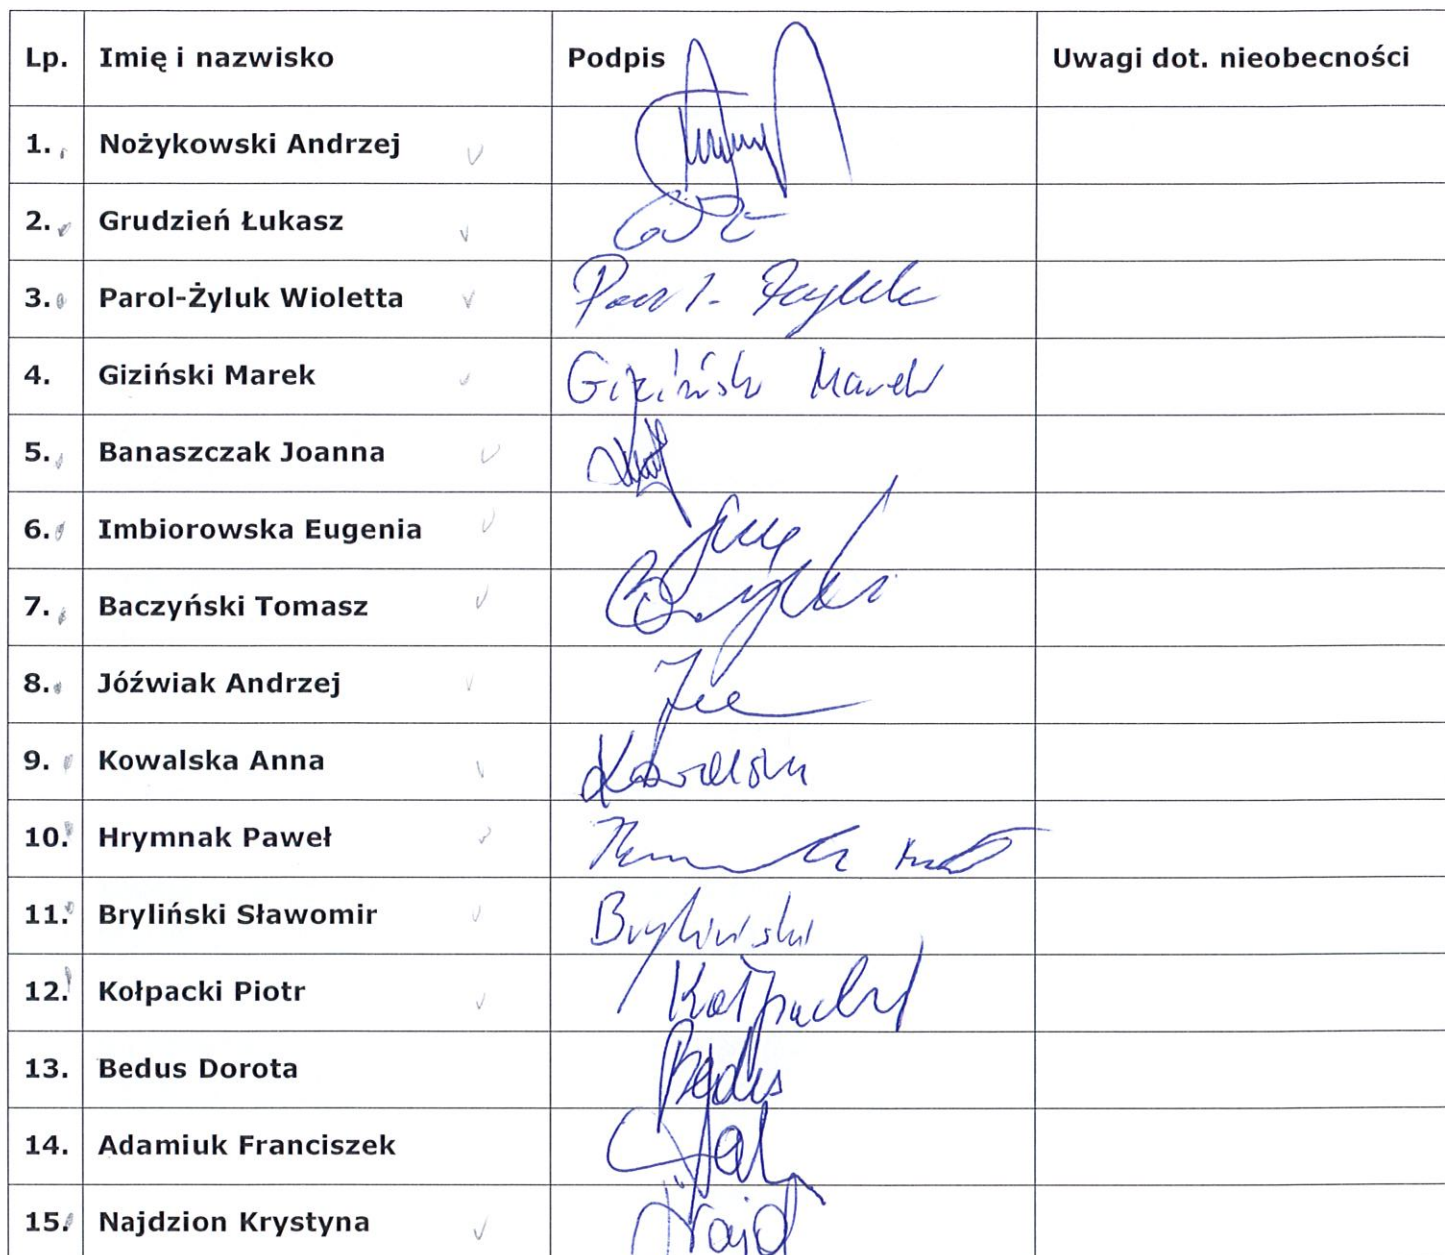 Lp. Imię i nazwisko Podpis Uwagi dot. nieobecności
1. Nożykowski Andrzej
2. Grudzień Łukasz
3. Parol-Żyluk Wioletta
4. Giziński Marek Giziński Marek
5. Banaszczak Joanna
6. Imbiorowska Eugenia
7. Baczyński Tomasz
8. Jóźwiak Andrzej
9. Kowalska Anna Kowalska
10. Hrymnak Paweł
11. Bryliński Sławomir Bryliński
12. Kołpacki Piotr Kołpacki
13. Bedus Dorota Bedus
14. Adamiuk Franciszek
15. Najdzion Krystyna Najd